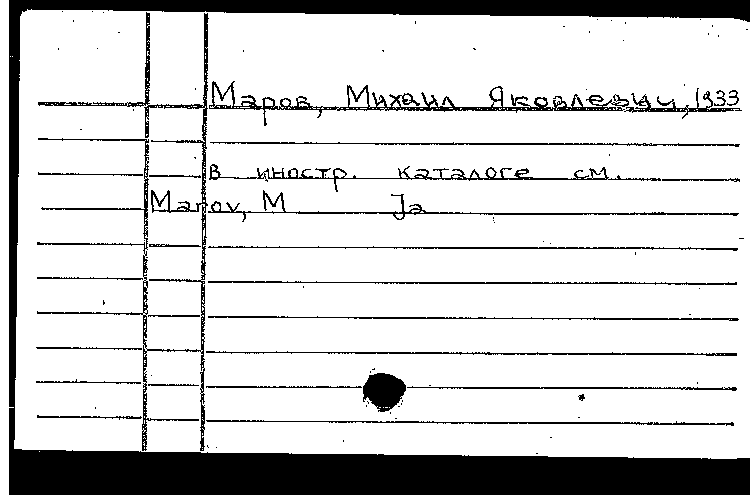 Маров, Михаил Яковлевич, 1933
в иностр. каталоге см.
Marov, M Ja